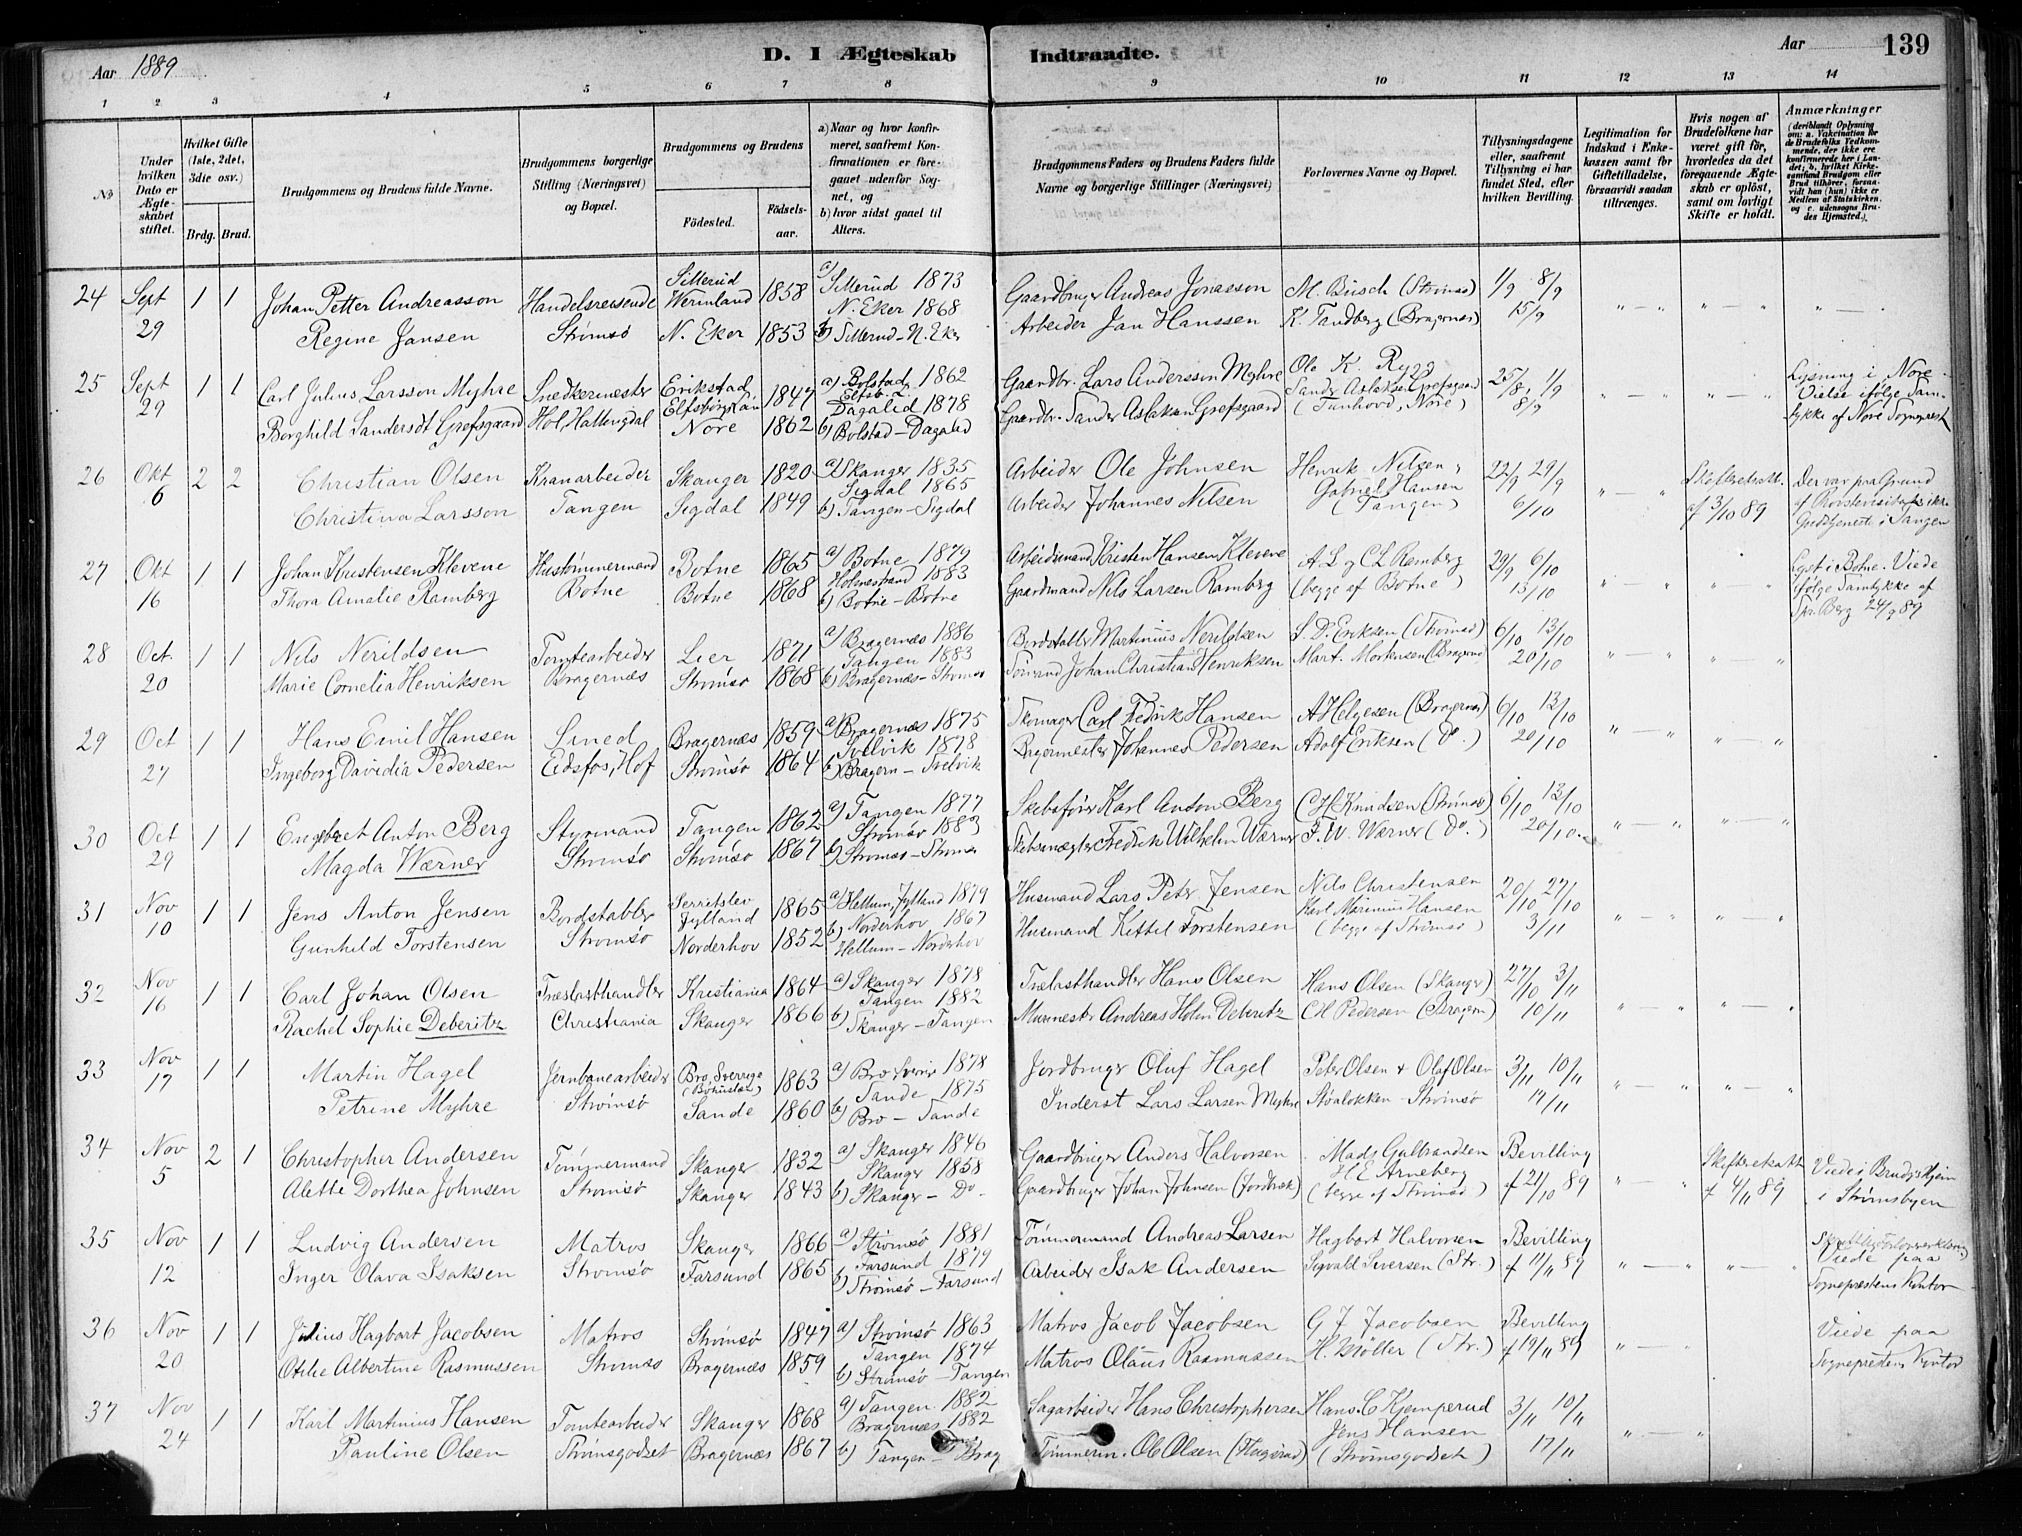 Aar 1889
D. I Ægteskab Indtraadte.
Aar
139
1 2 3 4 5 6 7 8 9 10 11 12 13 14
№
Under hvilken Dato er Ægteskabet stiftet.
Hvilket Gifte (1ste, 2det, 3die osv.)
Brdg. Brud.
Brudgommens og Brudens fulde Navne.
Brudgommens borgerlige Stilling (Næringsvei) og Bopæl.
Brudgommens og Brudens
Fødested.
Fødselsaar.
a) Naar og hvor konfirmeret, saafremt Konfirmationen er foregaaet udenfor Sognet, og
b) hvor sidst gaaet til Alters.
Brudgommens Faders og Brudens Faders fulde Navne og borgerlige Stillinger (Næringsvei)
Forlovernes Navne og Bopæl.
Tillysningsdagene eller, saafremt Tillysning ei har fundet Sted, efter hvilken Bevilling.
Legitimation for Indskud i Enkekassen samt for Giftetilladelse, forsaavidt saadan tiltrænges.
Hvis nogen af Brudefolkene har været gift før, hvorledes da det foregaaende Ægteskab er opløst, samt om lovligt Skifte er holdt.
Anmærkninger
24 Sept 29 1 1
Johan Petter Andreasson
Regine Jansen
Handelsreisende
Strømsø
Sillerud Wermland 1858
N. Eker 1853
a) Sillerud 1873
N. Eker 1868
b) Sillerud - N. Eker
Gaardbruger Andreas Jonasson
Arbeider Jan Hanssen
M. Busch (Strømsø)
K. Tandberg (Bragernæs)
1/9 8/9
15/9
25 Sept 29 1 1
Carl Julius Larsson Myhre
Borghild Sandersdt Grefsgaard
Snedkermester
Hol, Hallingdal
Erikstad 1847
Nore 1862
a) Bolstad 1862
Dagalid 1878
b) Bolstad - Dagalid
Gaardbr. Lars Andersson Myhre
Gaardbr. Sander Aslaksen Grefsgaard
Ole K. Rygg
Sander Aslaksen Grefsgaard
(Tunhovd, Nore)
25/8 1/9
8/9
Lysning i Nore.
Vielse ifølge Sam-
tykke af Nore Sognepræst
26 Okt 6 2 2
Christian Olsen
Christina Larsson
Kranarbeider
Tangen
Skauger 1820
Sigdal 1849
a) Skanger 1835
Sigdal 1865
b) Tangen - Sigdal
Arbeider Ole Johnsen
Arbeider Johannes Nilsen
Henrik Nilsen
Gabriel Hansen
(Tangen)
22/9 29/9
6/10
Skifteretsatt.
af 3/10 89
Der var paa Grund
Gudstjeneste i Tangen
27 Okt 16 1 1
Johan Kristensen Klevene
Thora Amalie Ramberg
Hustømmermand
Botne
Botne 1865
Botne 1868
a) Botne 1879
Holmestrand 1883
b) Botne - Botne
Arbeidsmand Kristen Hansen Klevene
Gaardmand Nils Larsen Ramberg
A L og C L Ramberg
(begge af Botne)
29/9 6/10
13/10
Lyst i Botne. Viede
ifølge Samtykke af
Spr. Berg 24/9 89
28 Oct. 20 1 1
Nils Nerildsen
Marie Cornelia Henriksen
Tomtearbeider
Bragernæs
Lier 1871
Strømsø 1868
a) Bragernæs 1886
Tangen 1883
b) Bragernæs - Strømsø
Bordstabler Martinius Nerildsen
Sømand Johan Christian Henriksen
S. D. Eriksen (Strømsø)
Mart. Mortensen (Bragernæs)
6/10 13/10
20/10
29 Oct 27 1 1
Hans Emil Hansen
Ingeborg Davidia Pedersen
Smed
Eidsfos, Hof
Bragernæs 1859
Strømsø 1864
a) Bragernæs 1875
Svelvik 1878
b) Bragern - Svelvik
Skomager Carl Fredrik Hansen
Bagermester Johannes Pedersen
A Helgesen (Bragernæs)
Adolf Eriksen (Do.)
6/10 13/10
20/10
30 Oct 29 1 1
Engebret Anton Berg
Magda Wærner
Styrmand
Strømsø
Tangen 1862
Strømsø 1867
a) Tangen 1877
Strømsø 1883
b) Strømsø - Strømsø
Skibsfører Karl Anton Berg
Skibsmægler Fredrik Wilhelm Wærner
C H Knudsen (Strømsø)
F. W. Wærner (Do.)
6/10 13/10
20/10
31 Nov 10 1 1
Jens Anton Jensen
Gunhild Torstensen
Bordstabler
Strømsø
Serritslev Jylland 1865
Norderhov 1852
a) Hellum, Jylland 1879
Norderhov 1867
b) Hellum - Norderhov
Husmand Lars Peter Jensen
Husmand Kittil Torstensen
Nils Christensen
Karl Marinius Hansen
(begge af Strømsø)
20/10 27/10
3/11
32 Nov 16 1 1
Carl Johan Olsen
Rachel Sophie Deberitz
Trælasthandler
Christiania
Kristiania 1864
Skauger 1866
a) Skanger 1878
Tangen 1882
b) Skanger - Tangen
Trælasthandler Hans Olsen
Murmester Andreas Holm Deberitz
Hans Olsen (Skauger)
C H Pedersen (Bragern)
27/10 3/11
10/11
33 Nov 17 1 1
Martin Hagel
Petrine Myhre
Jernbanearbeider
Strømsø
Bro, Sverrige (Bohuslen) 1863
Sande 1860
a) Bro Sverrig 1878
Sande 1875
b) Bro - Sande
Jordbruger Oluf Hagel
Inderst Lars Larsen Myhre
Peter Olsen & Olaf Olsen
Støaløkken - Strømsø
3/11 10/11
17/11
34 Nov 5 2 1
Christopher Andersen
Alette Dorthea Johnsen
Tømmermand
Strømsø
Skauger 1832
Skauger 1843
a) Skauger 1846
Skauger 1858
b) Skauger - Do.
Gaardbruger Anders Halvorsen
Gaardbruger Johan Johnsen (Jordbræk)
Mads Gulbrandsen
H E Arneberg
(begge af Strømsø)
Bevilling
af 21/10 89
Skifteretsatt
af 4/11 89
Viede i Brudgs Hjem
i Strømsbyen
35 Nov 12 1 1
Ludvig Andersen
Inger Olava Isaksen
Matros
Strømsø
Skauger 1866
Farsund 1865
a) Strømsø 1881
Farsund 1879
b) Strømsø - Farsund
Tømmermand Andreas Larsen
Arbeider Isak Andersen
Hagbart Halvorsen
Sigvald Siversen (Str.)
Bevilling
af 11/11 89
Viede paa
Sognepræstens Kontor
36 Nov 20 1 1
Julius Hagbart Jacobsen
Otilie Albertine Rasmussen
Matros
Strømsø
Strømsø 1847
Bragernæs 1859
a) Strømsø 1863
Tangen 1874
b) Strømsø - Tangen
Matros Jacob Jacobsen
Matros Olaus Rasmussen
G J Jacobsen
H. Møller (Str.)
Bevilling
af 19/11 89
Viede paa
Sognepræstens Kontor
37 Nov 24 1 1
Karl Martinius Hansen
Pauline Olsen
Tomtearbeider
Strømsgodset
Skauger 1868
Bragernæs 1867
a) Tangen 1882
Bragernæs 1882
b) Tangen - Brag
Sagarbeider Hans Christophersen
Tømmerm. Ole Olsen
Hans C Kjemperud
Jens Hansen
(Strømsgodset)
3/11 10/11
17/11